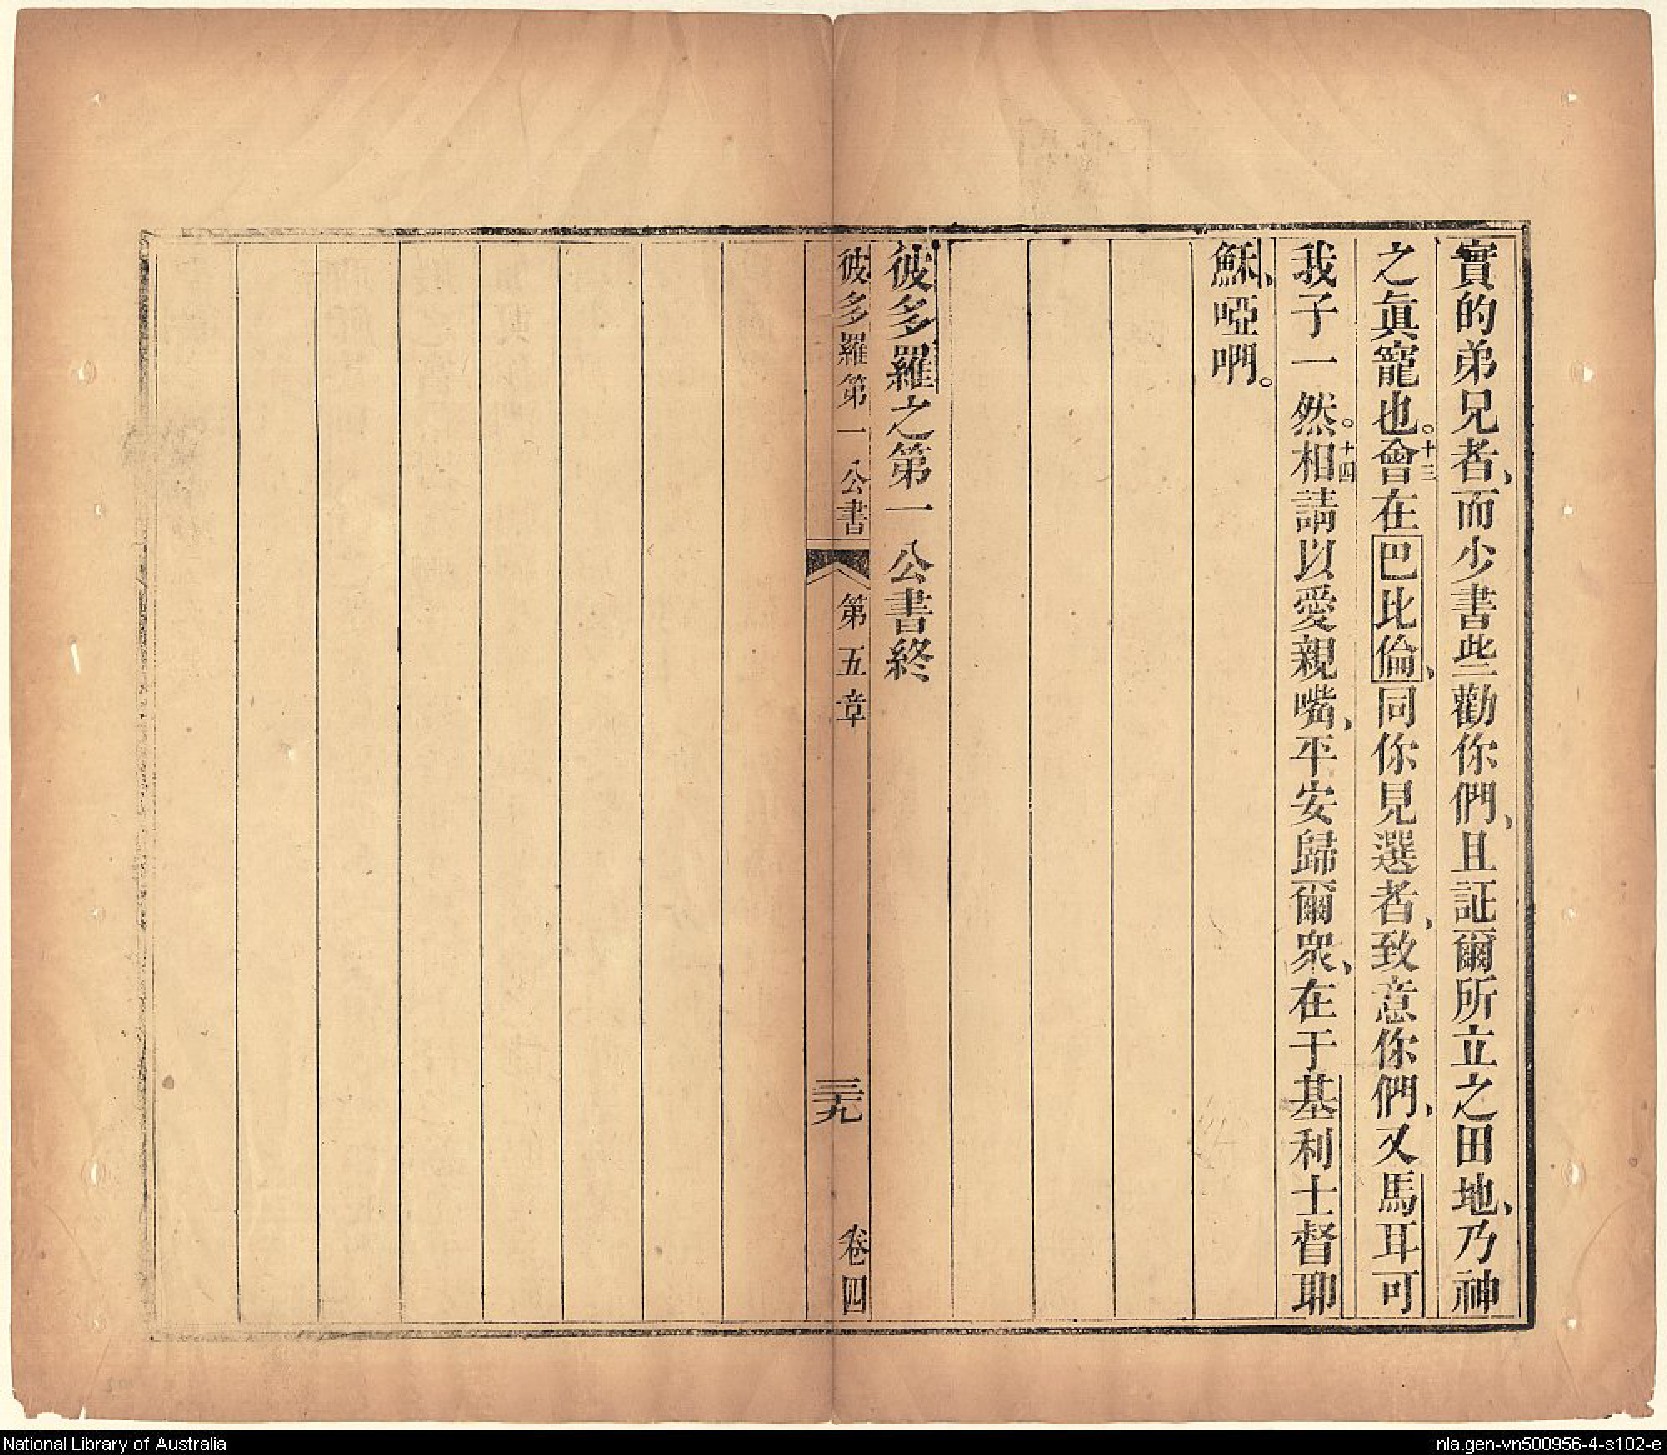 實的弟兄者、而少書些勸你們、且証爾所立之田地、乃神
之眞寵也。十三會在巴比倫、同你見選者、致意你們、又馬耳可
我子一然。十四相請以愛親嘴、平安歸爾衆、在于基利士督耶
穌、啞啊。
彼多羅之第一公書終
彼多羅第一公書 第五章 三十九 卷四
National Library of Australia
nla.gen-vn500956-4-s102-e